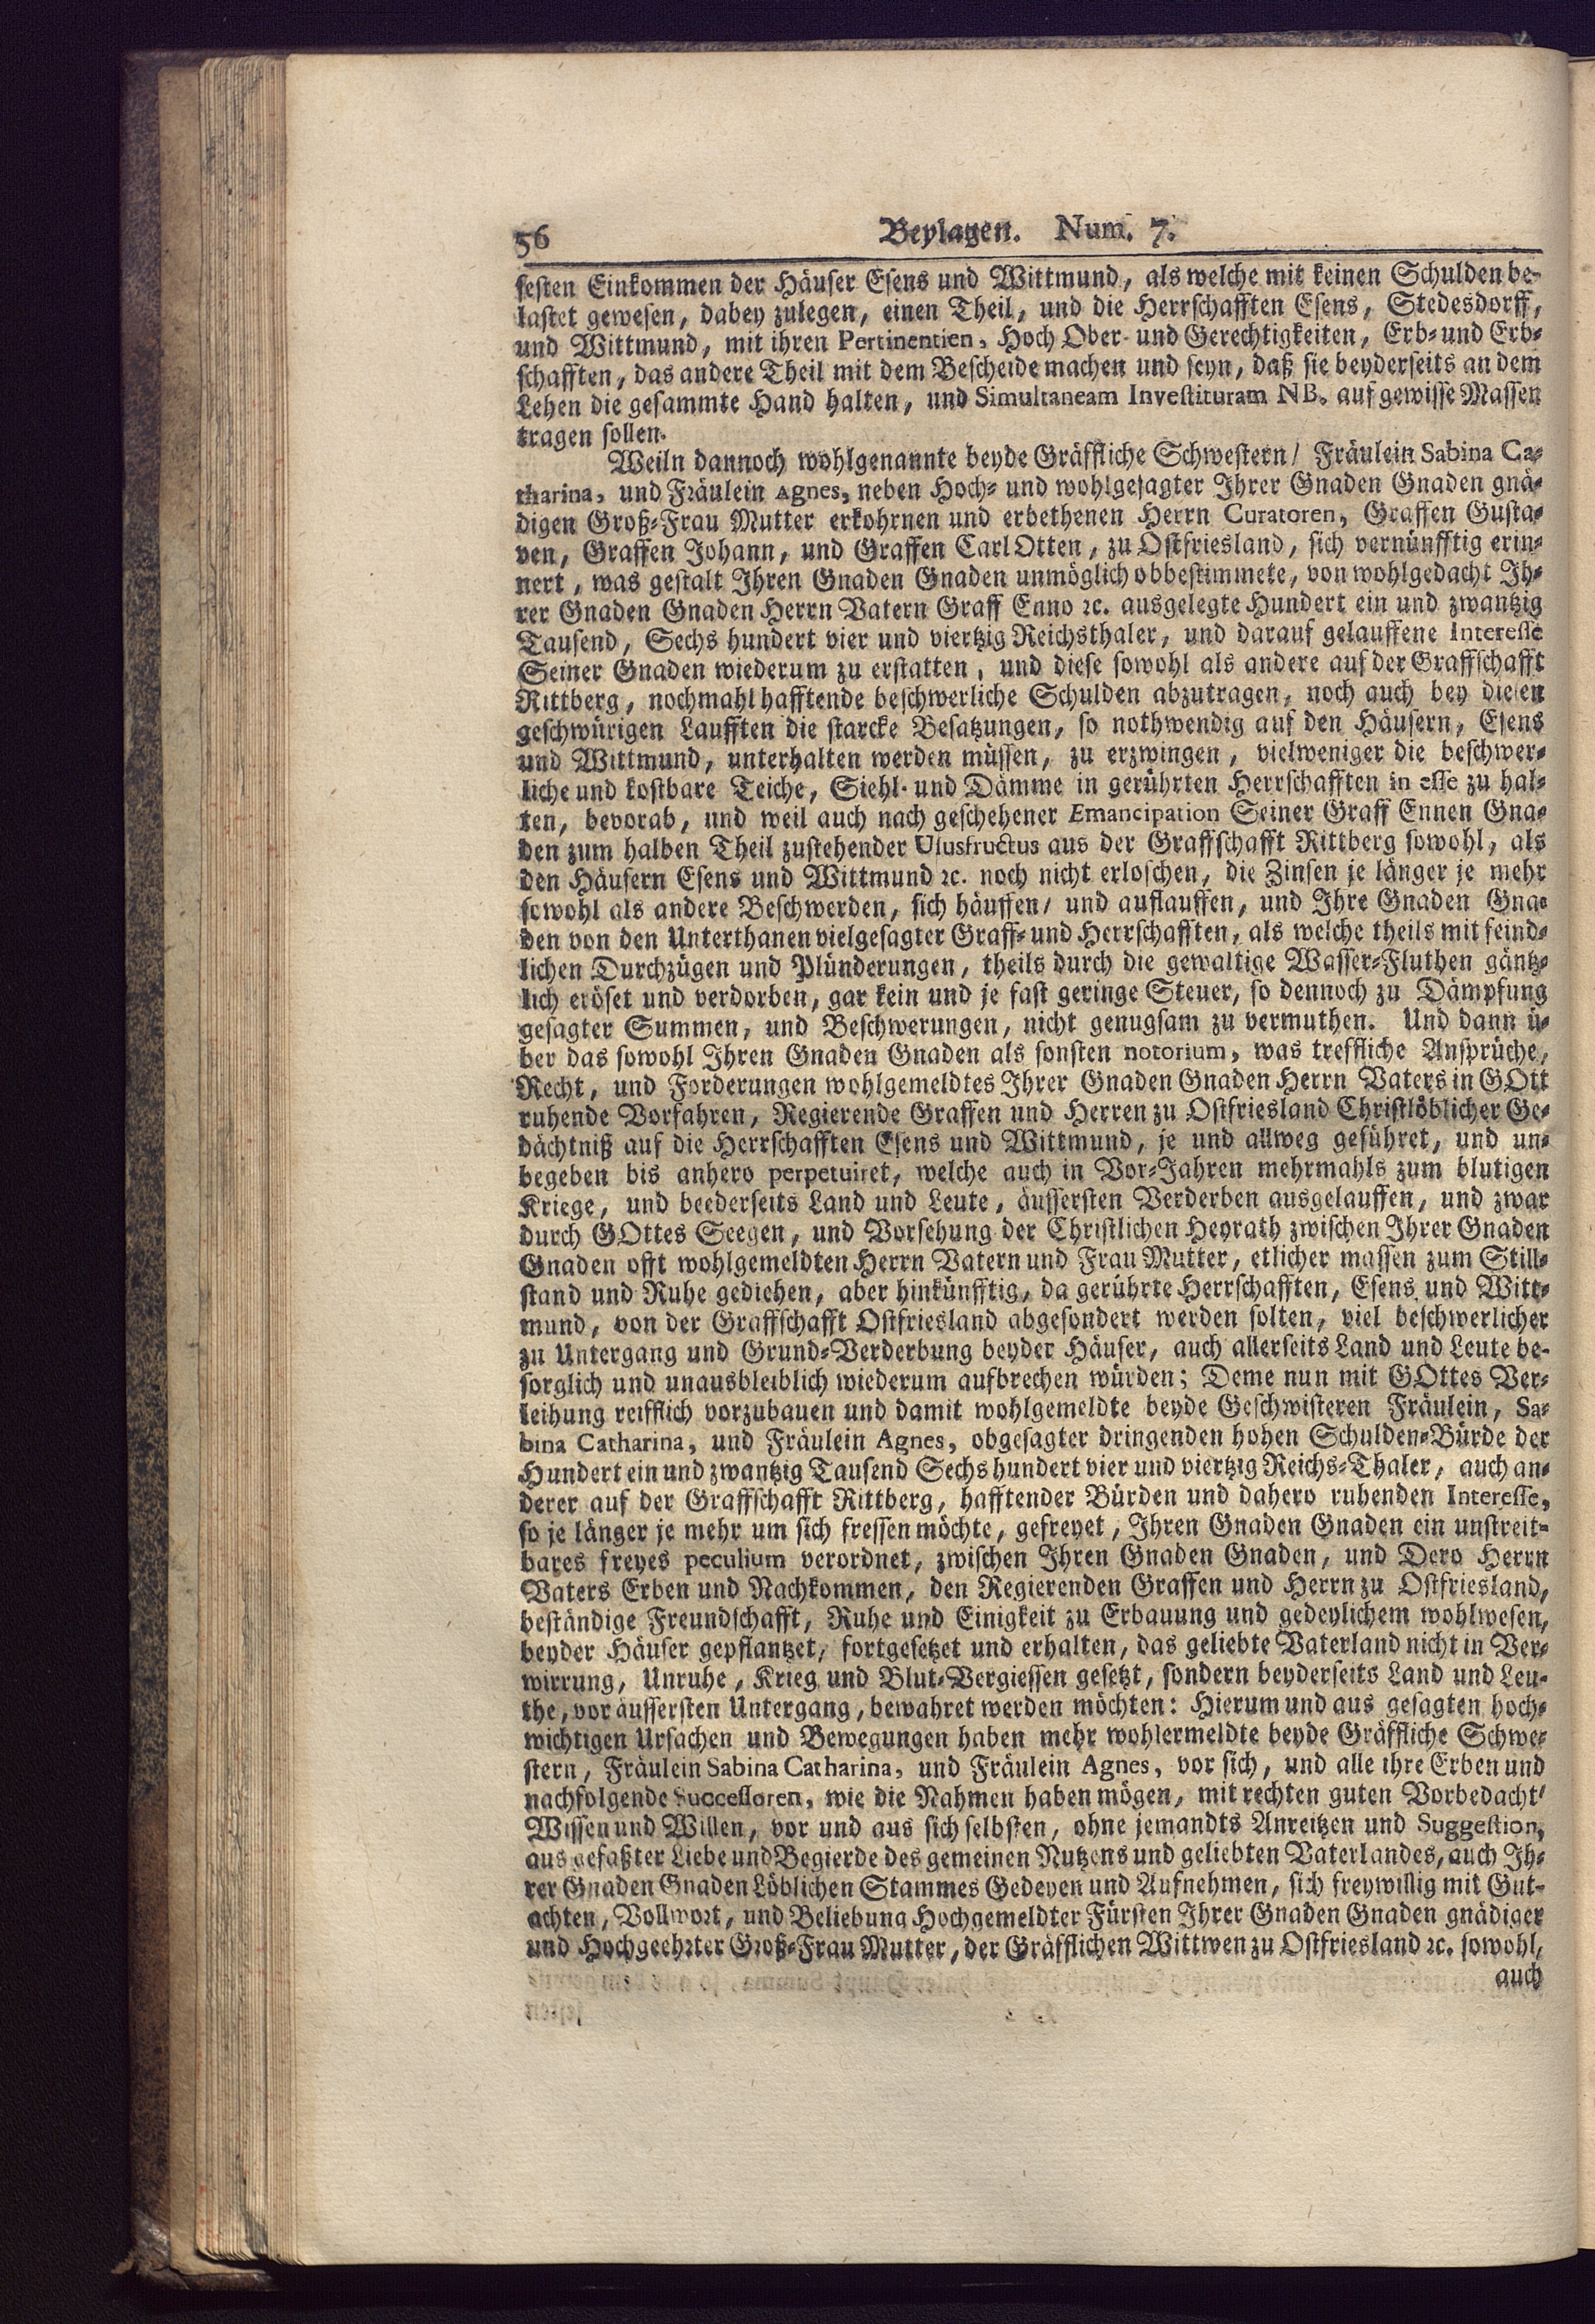 56 Beylagen. Num. 7.
festen Einkommen der Häuser Esens und Wittmund, als welche mit keinen Schulden be-
lastet gewesen, dabey zulegen, einen Theil, und die Herrschafften Esens, Stedesdorff,
und Wittmund, mit ihren Pertinentien, Hoch Ober- und Gerechtigkeiten, Erb- und Erb-
schafften, das andere Theil mit dem Bescheide machen und seyn, daß sie beyderseits an dem
Lehen die gesammte Hand halten, und Simultaneam Investituram NB. auf gewisse Massen
tragen sollen.
Weiln dannoch wohlgenannte beyde Gräffliche Schwestern / Fräulein Sabina Ca-
tharina, und Fräulein Agnes, neben Hoch- und wohlgesagter Ihrer Gnaden Gnaden gnä-
digen Groß-Frau Mutter erkohrnen und erbethenen Herrn Curatoren, Graffen Gusta-
ven, Graffen Johann, und Graffen Carl Otten, zu Ostfriesland, sich vernünfftig erin-
nert, was gestalt Ihren Gnaden Gnaden unmöglich obbestimmete, von wohlgedacht Ih-
rer Gnaden Gnaden Herrn Vatern Graff Enno ꝛc. ausgelegte Hundert ein und zwantzig
Tausend, Sechs hundert vier und viertzig Reichsthaler, und darauf gelauffene Interesse
Seiner Gnaden wiederum zu erstatten, und diese sowohl als andere auf der Graffschafft
Rittberg, nochmahl hafftende beschwerliche Schulden abzutragen, noch auch bey diesen
geschwürigen Laufften die starcke Besatzungen, so nothwendig auf den Häusern, Esens
und Wittmund, unterhalten werden müssen, zu erzwingen, vielweniger die beschwer-
liche und kostbare Teiche, Siehl- und Dämme in gerührten Herrschafften in esse zu hal-
ten, bevorab, und weil auch nach geschehener Emancipation Seiner Graff Ennen Gna-
den zum halben Theil zustehender Ususfructus aus der Graffschafft Rittberg sowohl, als
den Häusern Esens und Wittmund ꝛc. noch nicht erloschen, die Zinsen je länger je mehr
sowohl als andere Beschwerden, sich häuffen / und auflauffen, und Ihre Gnaden Gna-
den von den Unterthanen vielgesagter Graff- und Herrschafften, als welche theils mit feind-
lichen Durchzügen und Plünderungen, theils durch die gewaltige Wasser-Fluthen gäntz-
lich eröset und verdorben, gar kein und je fast geringe Steuer, so dennoch zu Dämpfung
gesagter Summen, und Beschwerungen, nicht genugsam zu vermuthen. Und dann ü-
ber das sowohl Ihren Gnaden Gnaden als sonsten notorium, was treffliche Ansprüche,
Recht, und Forderungen wohlgemeldtes Ihrer Gnaden Gnaden Herrn Vaters in GOtt
ruhende Vorfahren, Regierende Graffen und Herren zu Ostfriesland Christlöblicher Ge-
dächtniß auf die Herrschafften Esens und Wittmund, je und allweg geführet, und un-
begeben bis anhero perpetuiret, welche auch in Vor-Jahren mehrmahls zum blutigen
Kriege, und beederseits Land und Leute, äussersten Verderben ausgelauffen, und zwar
durch GOttes Seegen, und Vorsehung der Christlichen Heyrath zwischen Ihrer Gnaden
Gnaden offt wohlgemeldten Herrn Vatern und Frau Mutter, etlicher massen zum Still-
stand und Ruhe gediehen, aber hinkünfftig, da gerührte Herrschafften, Esens und Witt-
mund, von der Graffschafft Ostfriesland abgesondert werden solten, viel beschwerlicher
zu Untergang und Grund-Verderbung beyder Häuser, auch allerseits Land und Leute be-
sorglich und unausbleiblich wiederum aufbrechen würden; Deme nun mit GOttes Ver-
leihung reifflich vorzubauen und damit wohlgemeldte beyde Geschwisteren Fräulein, Sa-
bina Catharina, und Fräulein Agnes, obgesagter dringenden hohen Schulden-Bürde der
Hundert ein und zwantzig Tausend Sechs hundert vier und viertzig Reichs-Thaler, auch an-
derer auf der Graffschafft Rittberg, hafftender Bürden und dahero ruhenden Interesse,
so je länger je mehr um sich fressen möchte, gefreyet, Ihren Gnaden Gnaden ein unstreit-
bares freyes peculium verordnet, zwischen Ihren Gnaden Gnaden, und Dero Herrn
Vaters Erben und Nachkommen, den Regierenden Graffen und Herrn zu Ostfriesland,
beständige Freundschafft, Ruhe und Einigkeit zu Erbauung und gedeylichem wohlwesen,
beyder Häuser gepflantzet, fortgesetzet und erhalten, das geliebte Vaterland nicht in Ver-
wirrung, Unruhe, Krieg und Blut-Vergiessen gesetzt, sondern beyderseits Land und Leu-
the, vor äussersten Untergang, bewahret werden möchten: Hierum und aus gesagten hoch-
wichtigen Ursachen und Bewegungen haben mehr wohlermeldte beyde Gräffliche Schwe-
stern, Fräulein Sabina Catharina, und Fräulein Agnes, vor sich, und alle ihre Erben und
nachfolgende Successoren, wie die Nahmen haben mögen, mit rechten guten Vorbedacht /
Wissen und Willen, vor und aus sich selbsten, ohne jemandts Anreitzen und Suggestion,
aus gefaßter Liebe und Begierde des gemeinen Nutzens und geliebten Vaterlandes, auch Ih-
rer Gnaden Gnaden Löblichen Stammes Gedeyen und Aufnehmen, sich freywillig mit Gut-
achten, Vollwort, und Beliebung Hochgemeldter Fürsten Ihrer Gnaden Gnaden gnädiger
und Hochgeehrter Groß-Frau Mutter, der Gräfflichen Wittwen zu Ostfriesland ꝛc. sowohl,
auch